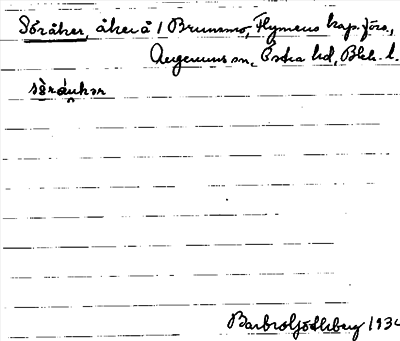 Söråker, åker å 1 Brunsmo, Flymens kap. förs.,
Augerums sn, Östra hd, Blek. l.
Barbro Götlberg 1934